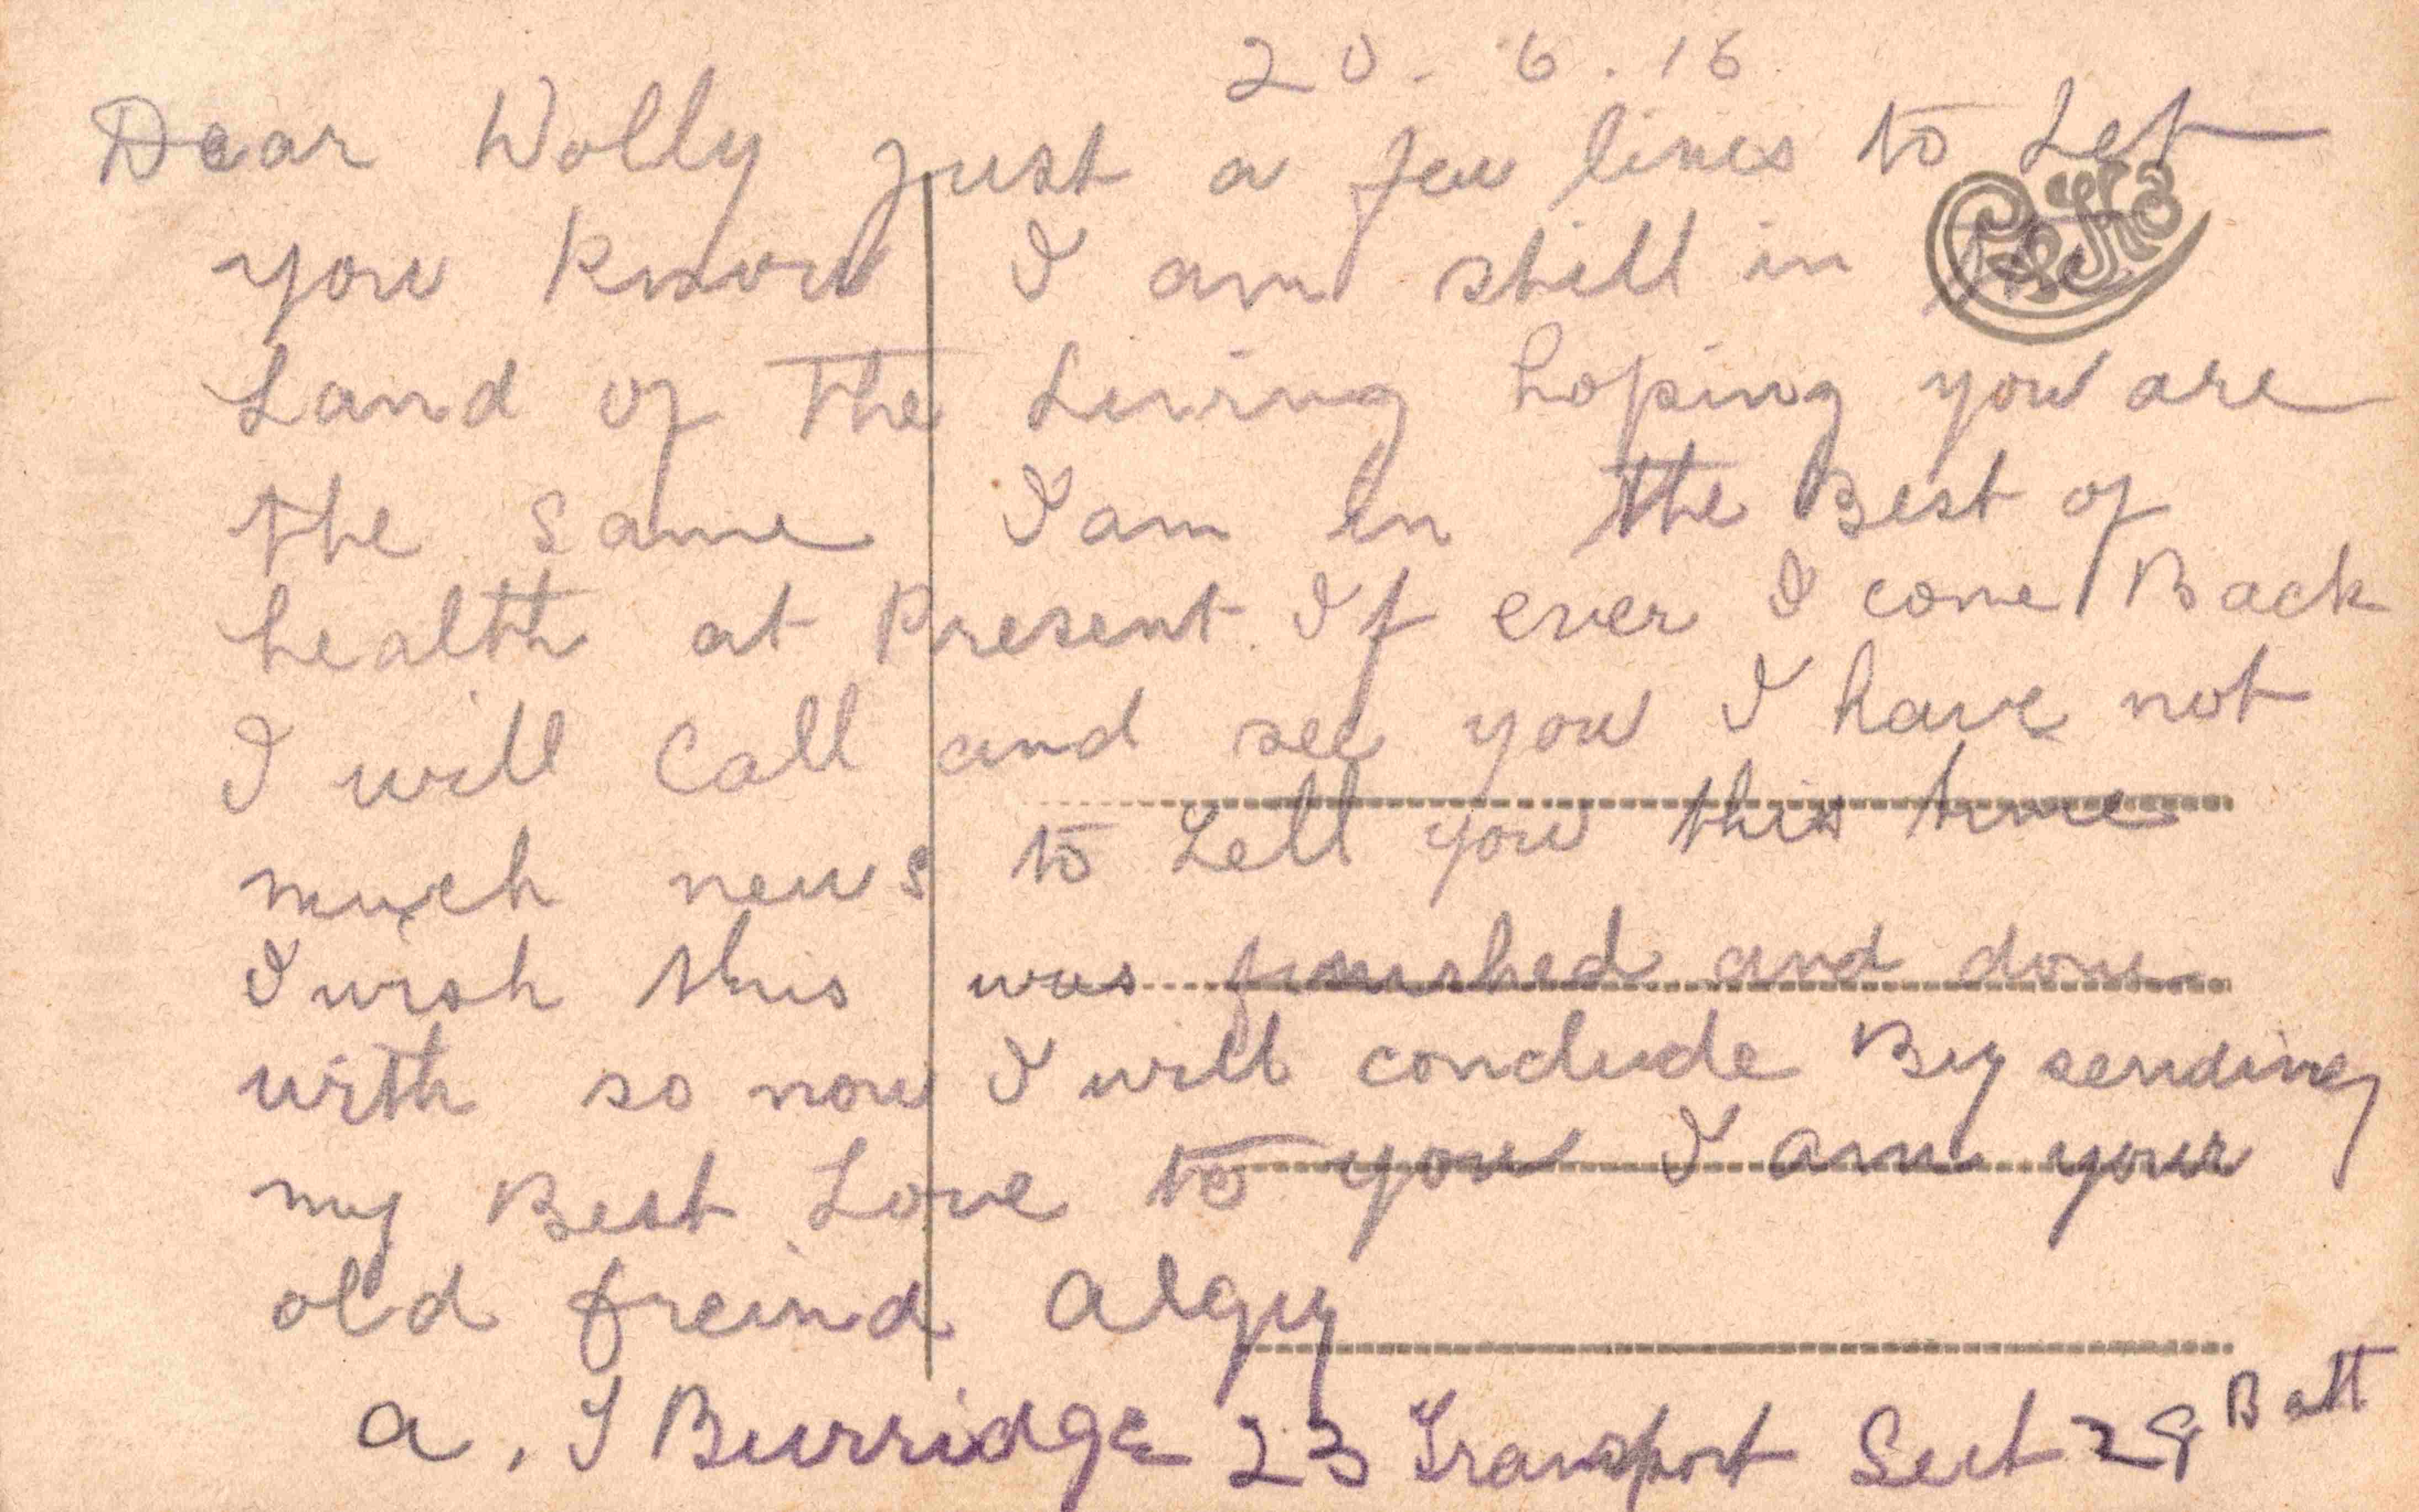 20. 6. 16
Dear Wolly just a few lines to Let
you know I am still in the
Land of The Living hoping you are
the same I am in the Best of
health at Present If ever I come Back
I will Call and see you I have not
much news to Tell you this time
I wish this was finished and done
with so now I will conclude By sending
my Best Love to you I am your
old freind Algy
A. J Burridge 23 Transport Sect 28 Batt